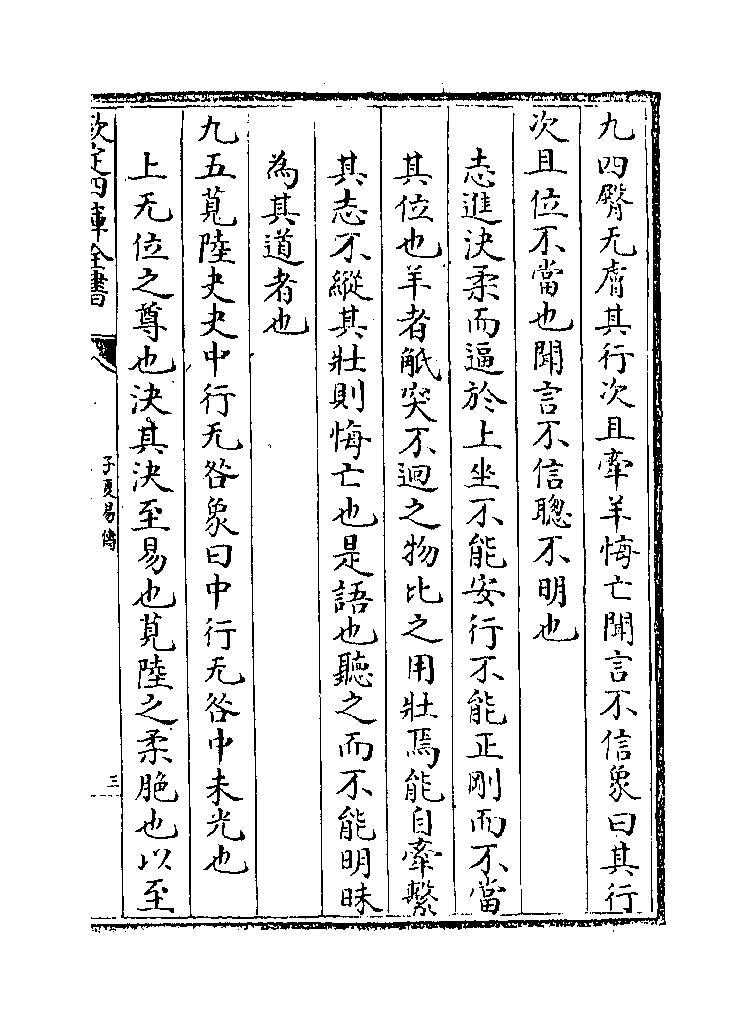 九四臀无膚其行次且牽羊悔亡聞言不信象曰其行
次且位不當也聞言不信聰不明也
志進決柔而逼於上坐不能安行不能正剛而不當
其位也羊者觝突不迴之物比之用壯焉能自牽繫
其志不縱其壯則悔亡也是語也聽之而不能明昧
為其道者也
九五莧陸夬夬中行无咎象曰中行无咎中未光也
上无位之尊也決其決至易也莧陸之柔脆也以至
欽定四庫全書
子夏易傳
三